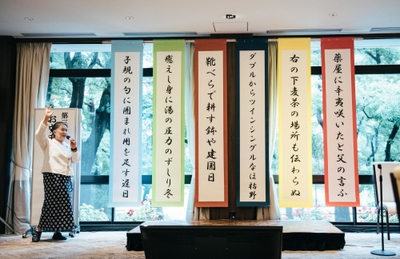 薬屋に辛夷咲いたと父の言ふ
右の下麦茶の場所も伝わらぬ
ダブルからツインシングルなほ枯野
靴べらで耕す鉢や建国日
癒えし身に湯の圧力のずしり冬
子規の句に囲まれ用を足す遅日
第